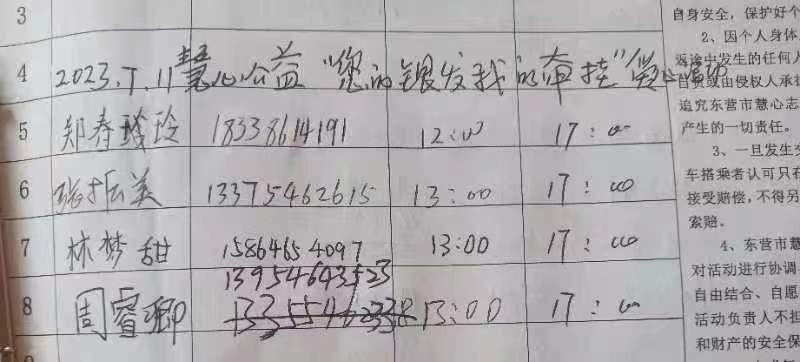 3
4 2023.7.11慧心公益“您的银发我的牵挂”爱心活动
5 郑春玲 18338614191 12:00 17:00
6 张振美 13375462615 13:00 17:00
7 林梦甜 15864654097 13:00 17:00
13954643523
8 周睿卿 13:00 17:00
自身安全，保护好个
2、因个人身体
返途中发生的任何人
自责或由侵权人承担
追究东营市慧心志
产生的一切责任。
3、一旦发生交
车搭乘者认可只在
接受赔偿，不得另
索赔。
4、东营市慧
对活动进行协调
自由结合、自愿
活动负责人不担
和财产的安全保